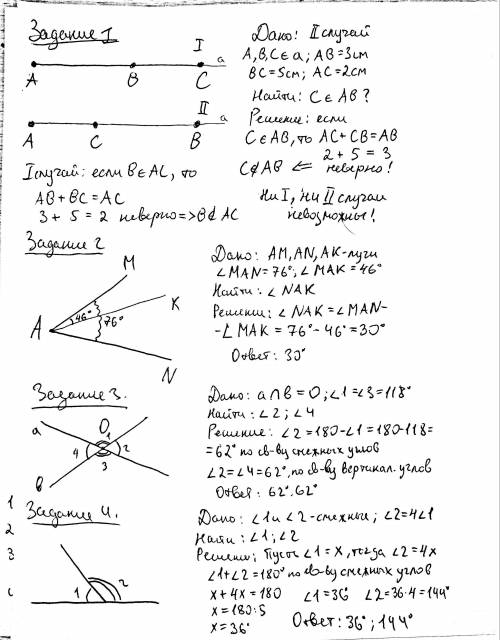 Задание I
I
A B C a
II
A C B a
I случай: если B∈AC, то
AB+BC=AC
3+5=2 неверно=>B∉AC
Дано: II случай
A,B,C∈a; AB=3см
BC=5см; AC=2см
Найти: C∈AB?
Решение: если
C∈AB, то AC+CB=AB
2+5=3
C∉AB <= неверно!
Ни I, ни II случаи
невозможны!
Задание 2
M
K
A 46° 76°
N
Дано: AM, AN, AK-лучи
∠MAN=76°; ∠MAK=46°
Найти: ∠NAK
Решение: ∠NAK=∠MAN-
-∠MAK=76°-46°=30°
Ответ: 30°
Задание 3.
a O
1
4 2
3
b
Дано: a∩b=O; ∠1=∠3=118°
Найти: ∠2; ∠4
Решение: ∠2=180-∠1=180-118=
=62° по св-ву смежных углов
∠2=∠4=62°, по св-ву вертикал. углов
Ответ: 62°. 62°
1
2
3
Задание 4.
1 2
Дано: ∠1 и ∠2-смежные; ∠2=4∠1
Найти: ∠1; ∠2
Решение; Пусть ∠1=x, тогда ∠2=4x
∠1+∠2=180° по св-ву смежных углов
x+4x=180 ∠1=36° ∠2=36·4=144°
x=180:5
x=36° Ответ: 36°; 144°